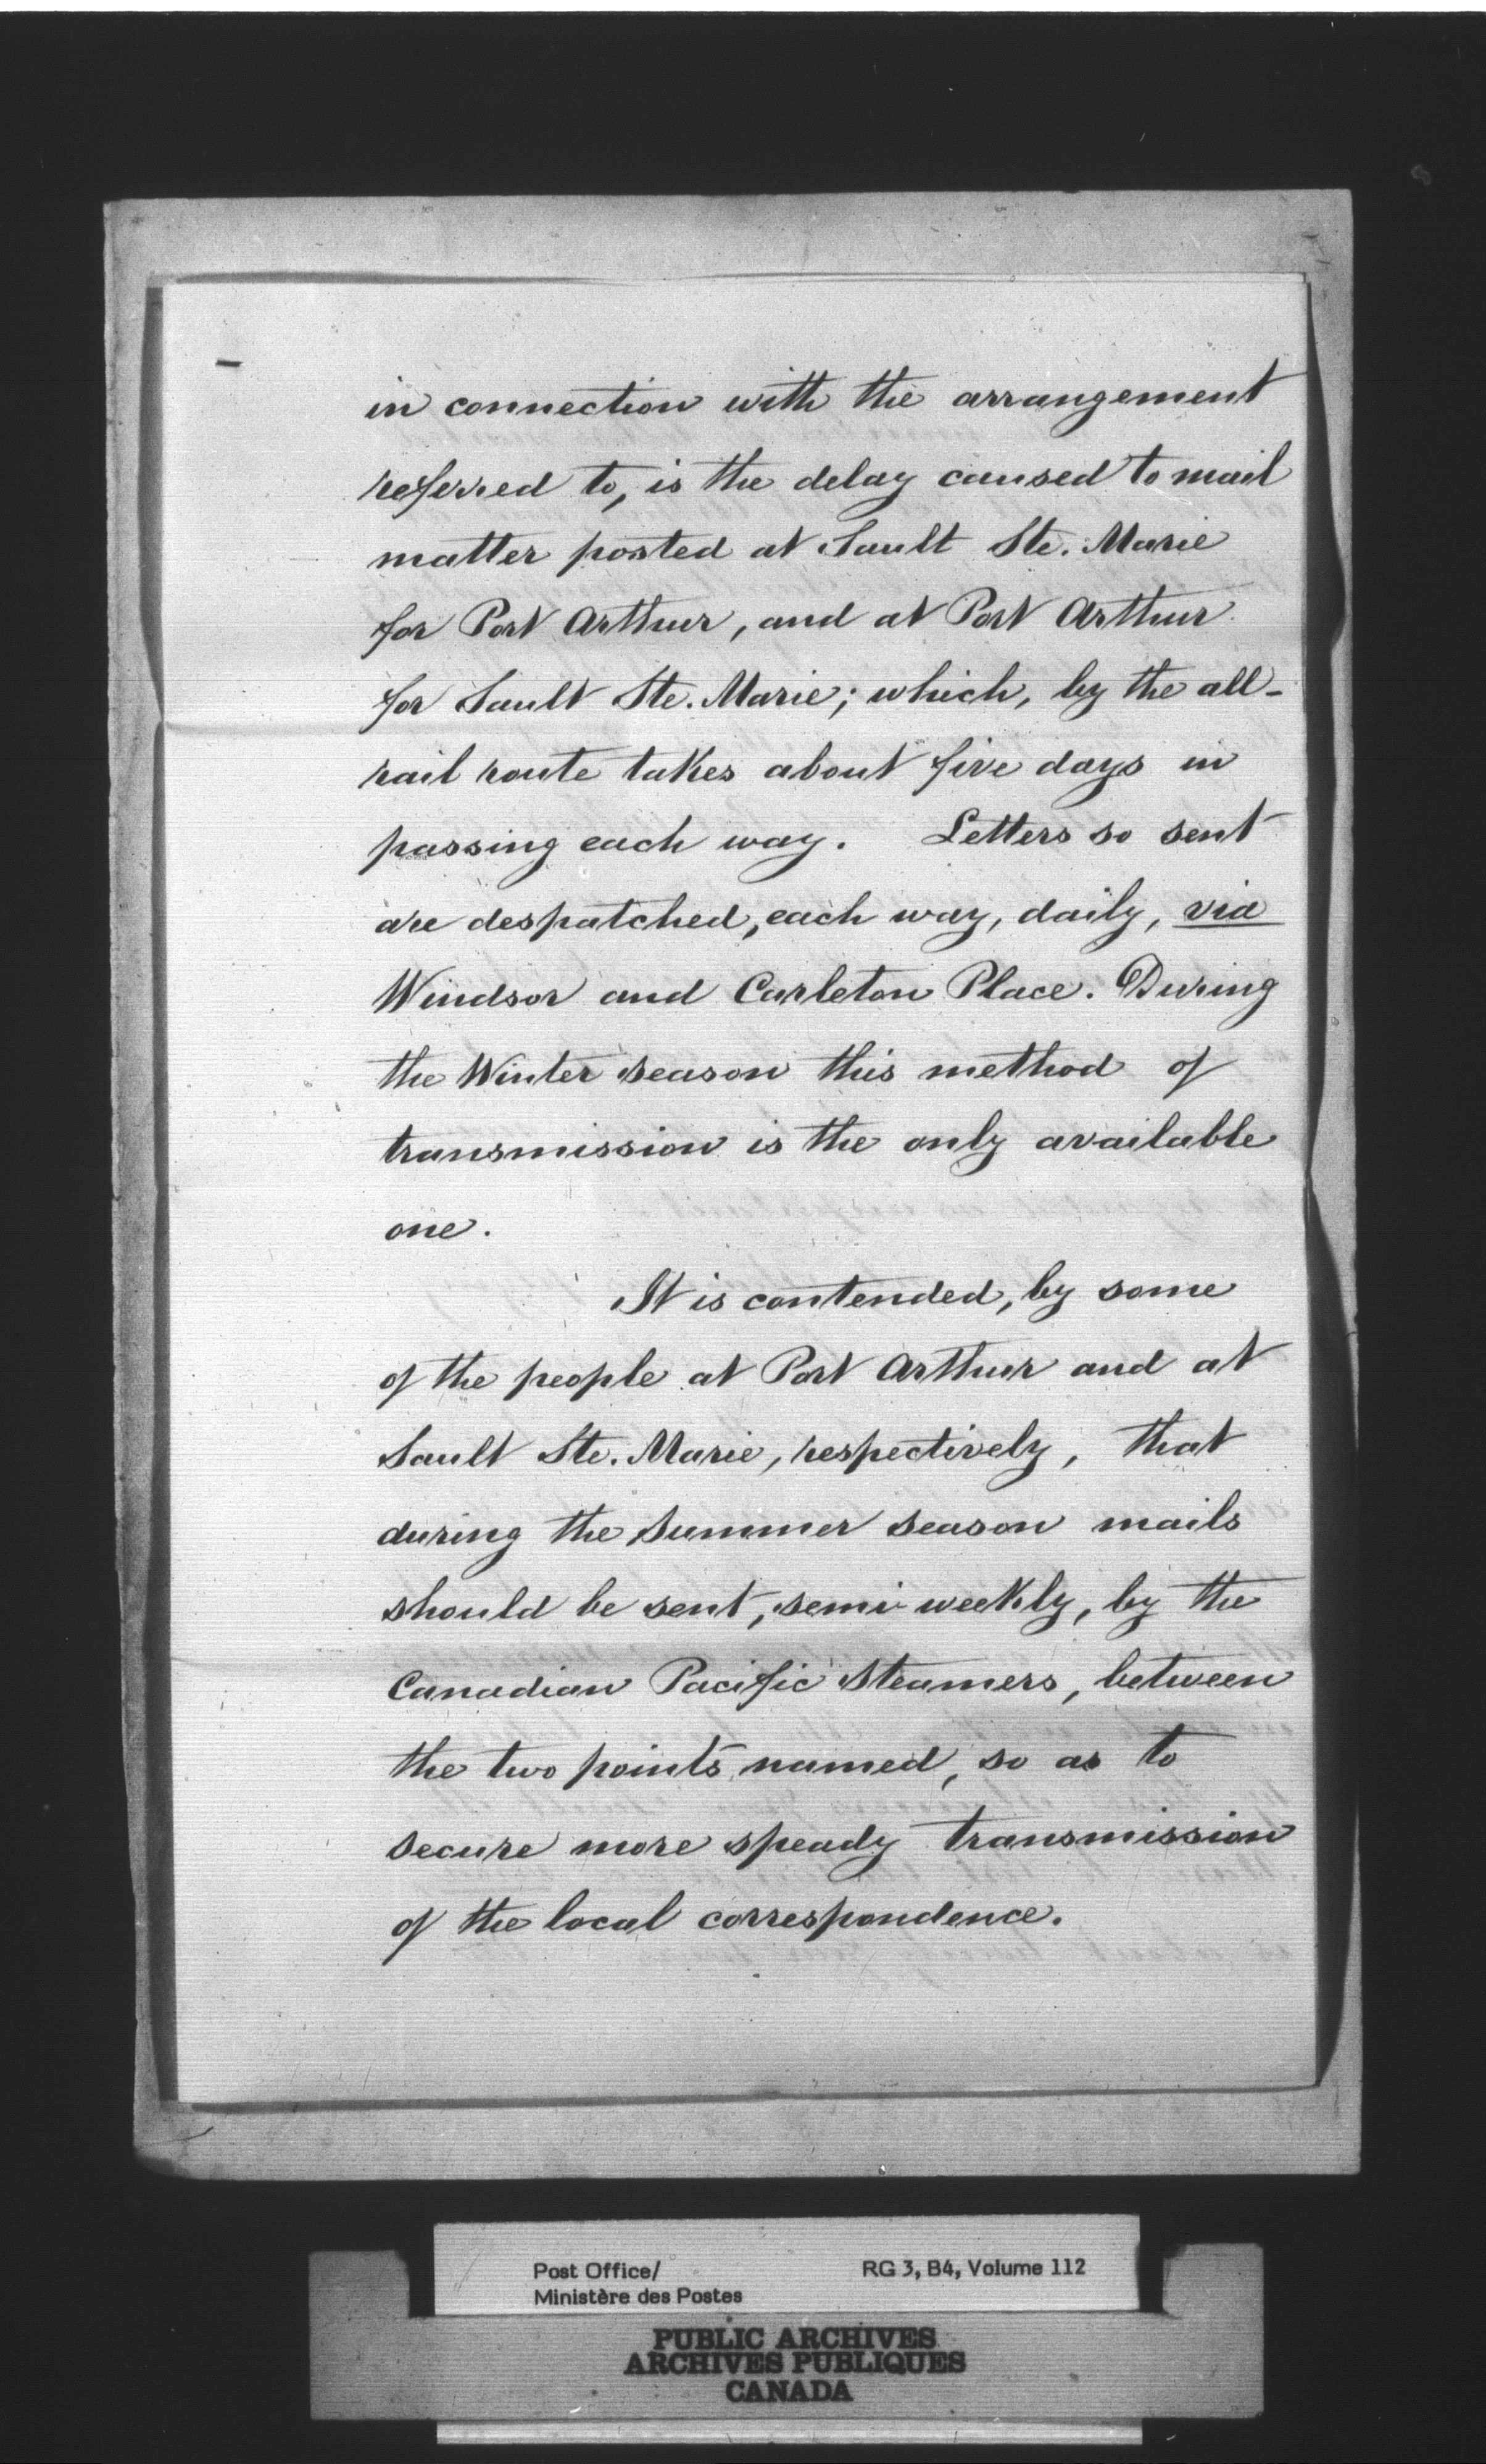 in connection with the arrangement
referred to, is the delay caused to mail
matter posted at Sault Ste. Marie
for Port Arthur, and at Port Arthur
for Sault Ste. Marie; which, by the all-
rail route takes about five days in
passing each way. Letters so sent
are despatched, each way, daily, via
Windsor and Carleton Place. During
the Winter season this method of
transmission is the only available
one.
It is contended, by some
of the people at Port Arthur and at
Sault Ste. Marie, respectively, that
during the Summer season mails
should be sent, semi-weekly, by the
Canadian Pacific Steamers, between
the two points named, so as to
secure more speady transmission
of the local correspondence.
Post Office/
Ministère des Postes
RG 3, B4, Volume 112
PUBLIC ARCHIVES
ARCHIVES PUBLIQUES
CANADA